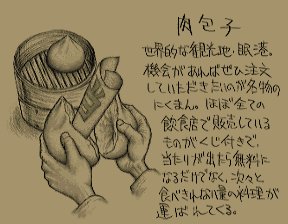 肉包子
世界的な観光地・眠港。
機会があればぜひ注文
していただきたいのが名物の
にくまん。ほぼ全ての
飲食店で販売している
ものがくじ付きで、
当たりが出たら無料に
なるだけでなく、次々と
食べきれない量の料理が
運ばれてくる。